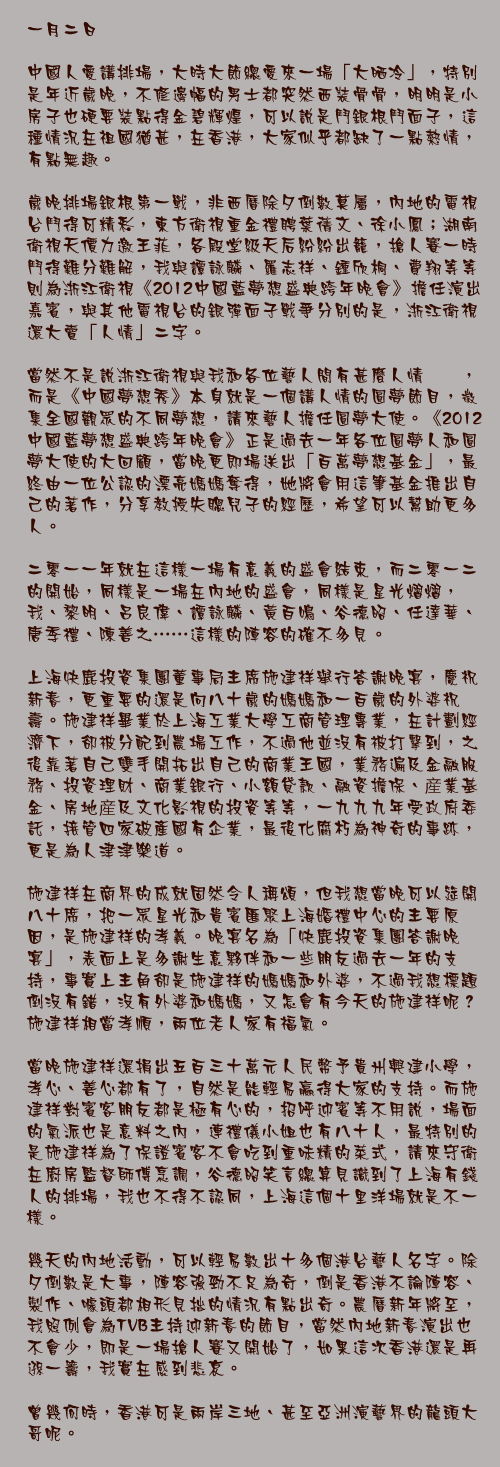 一月二日
中國人愛講排場，大時大節總愛來一場「大晒冷」，特別
是年近歲晚，不修邊幅的男士都突然西裝骨骨，明明是小
房子也硬要裝點得金碧輝煌，可以說是鬥銀根鬥面子，這
種情況在祖國猶甚，在香港，大家似乎都缺了一點熱情，
有點無趣。
歲晚排場銀根第一戰，非西曆除夕倒數莫屬，內地的電視
台鬥得可精彩，東方衛視重金禮聘葉蒨文、徐小鳳；湖南
衛視天價力邀王菲，各殿堂級天后紛紛出籠，搶人賽一時
鬥得難分難解，我與譚詠麟、羅志祥、鍾欣桐、費翔等等
則為浙江衛視《2012中國藍夢想盛典跨年晚會》擔任演出
嘉賓，與其他電視台的銀彈面子戰爭分別的是，浙江衛視
還大賣「人情」二字。
當然不是說浙江衛視與我和各位藝人間有甚麼人情　　，
而是《中國夢想秀》本身就是一個講人情的圓夢節目，徵
集全國觀眾的不同夢想，請來藝人擔任圓夢大使。《2012
中國藍夢想盛典跨年晚會》正是過去一年各位圓夢人和圓
夢大使的大回顧，當晚更即場送出「百萬夢想基金」，最
終由一位公認的漂亮媽媽奪得，她將會用這筆基金推出自
己的著作，分享教授失聰兒子的經歷，希望可以幫助更多
人。
二零一一年就在這樣一場有意義的盛會結束，而二零一二
的開始，同樣是一場在內地的盛會，同樣是星光熠熠，
我、黎明、呂良偉、譚詠麟、黃百鳴、谷德昭、任達華、
唐季禮、陳善之……這樣的陣容的確不多見。
上海快鹿投資集團董事局主席施建祥舉行答謝晚宴，慶祝
新春，更重要的還是向八十歲的媽媽和一百歲的外婆祝
壽。施建祥畢業於上海工業大學工商管理專業，在計劃經
濟下，卻被分配到農場工作，不過他並沒有被打擊到，之
後靠著自己雙手開拓出自己的商業王國，業務遍及金融服
務、投資理財、商業銀行、小額貸款、融資擔保、產業基
金、房地產及文化影視的投資等等，一九九九年受政府委
託，接管四家破產國有企業，最後化腐朽為神奇的事跡，
更是為人津津樂道。
施建祥在商界的成就固然令人稱頌，但我想當晚可以筵開
八十席，把一眾星光和貴賓匯聚上海婚禮中心的主要原
因，是施建祥的孝義。晚宴名為「快鹿投資集團答謝晚
宴」，表面上是多謝生意夥伴和一些朋友過去一年的支
持，事實上主角卻是施建祥的媽媽和外婆，不過我想標題
倒沒有錯，沒有外婆和媽媽，又怎會有今天的施建祥呢？
施建祥相當孝順，兩位老人家有福氣。
當晚施建祥還捐出五百三十萬元人民幣予貴州興建小學，
孝心、善心都有了，自然是能輕易贏得大家的支持。而施
建祥對賓客朋友都是極有心的，招呼迎賓等不用說，場面
的氣派也是意料之內，連禮儀小姐也有八十人，最特別的
是施建祥為了保證賓客不會吃到重味精的菜式，請來守衛
在廚房監督師傅烹調，谷德昭笑言總算見識到了上海有錢
人的排場，我也不得不認同，上海這個十里洋場就是不一
樣。
幾天的內地活動，可以輕易數出十多個港台藝人名字。除
夕倒數是大事，陣容強勁不足為奇，倒是香港不論陣容、
製作、噱頭都相形見拙的情況有點出奇。農曆新年將至，
我照例會為TVB主持迎新春的節目，當然內地新春演出也
不會少，即是一場搶人賽又開始了，如果這次香港還是再
遜一籌，我實在感到悲哀。
曾幾何時，香港可是兩岸三地、甚至亞洲演藝界的龍頭大
哥呢。